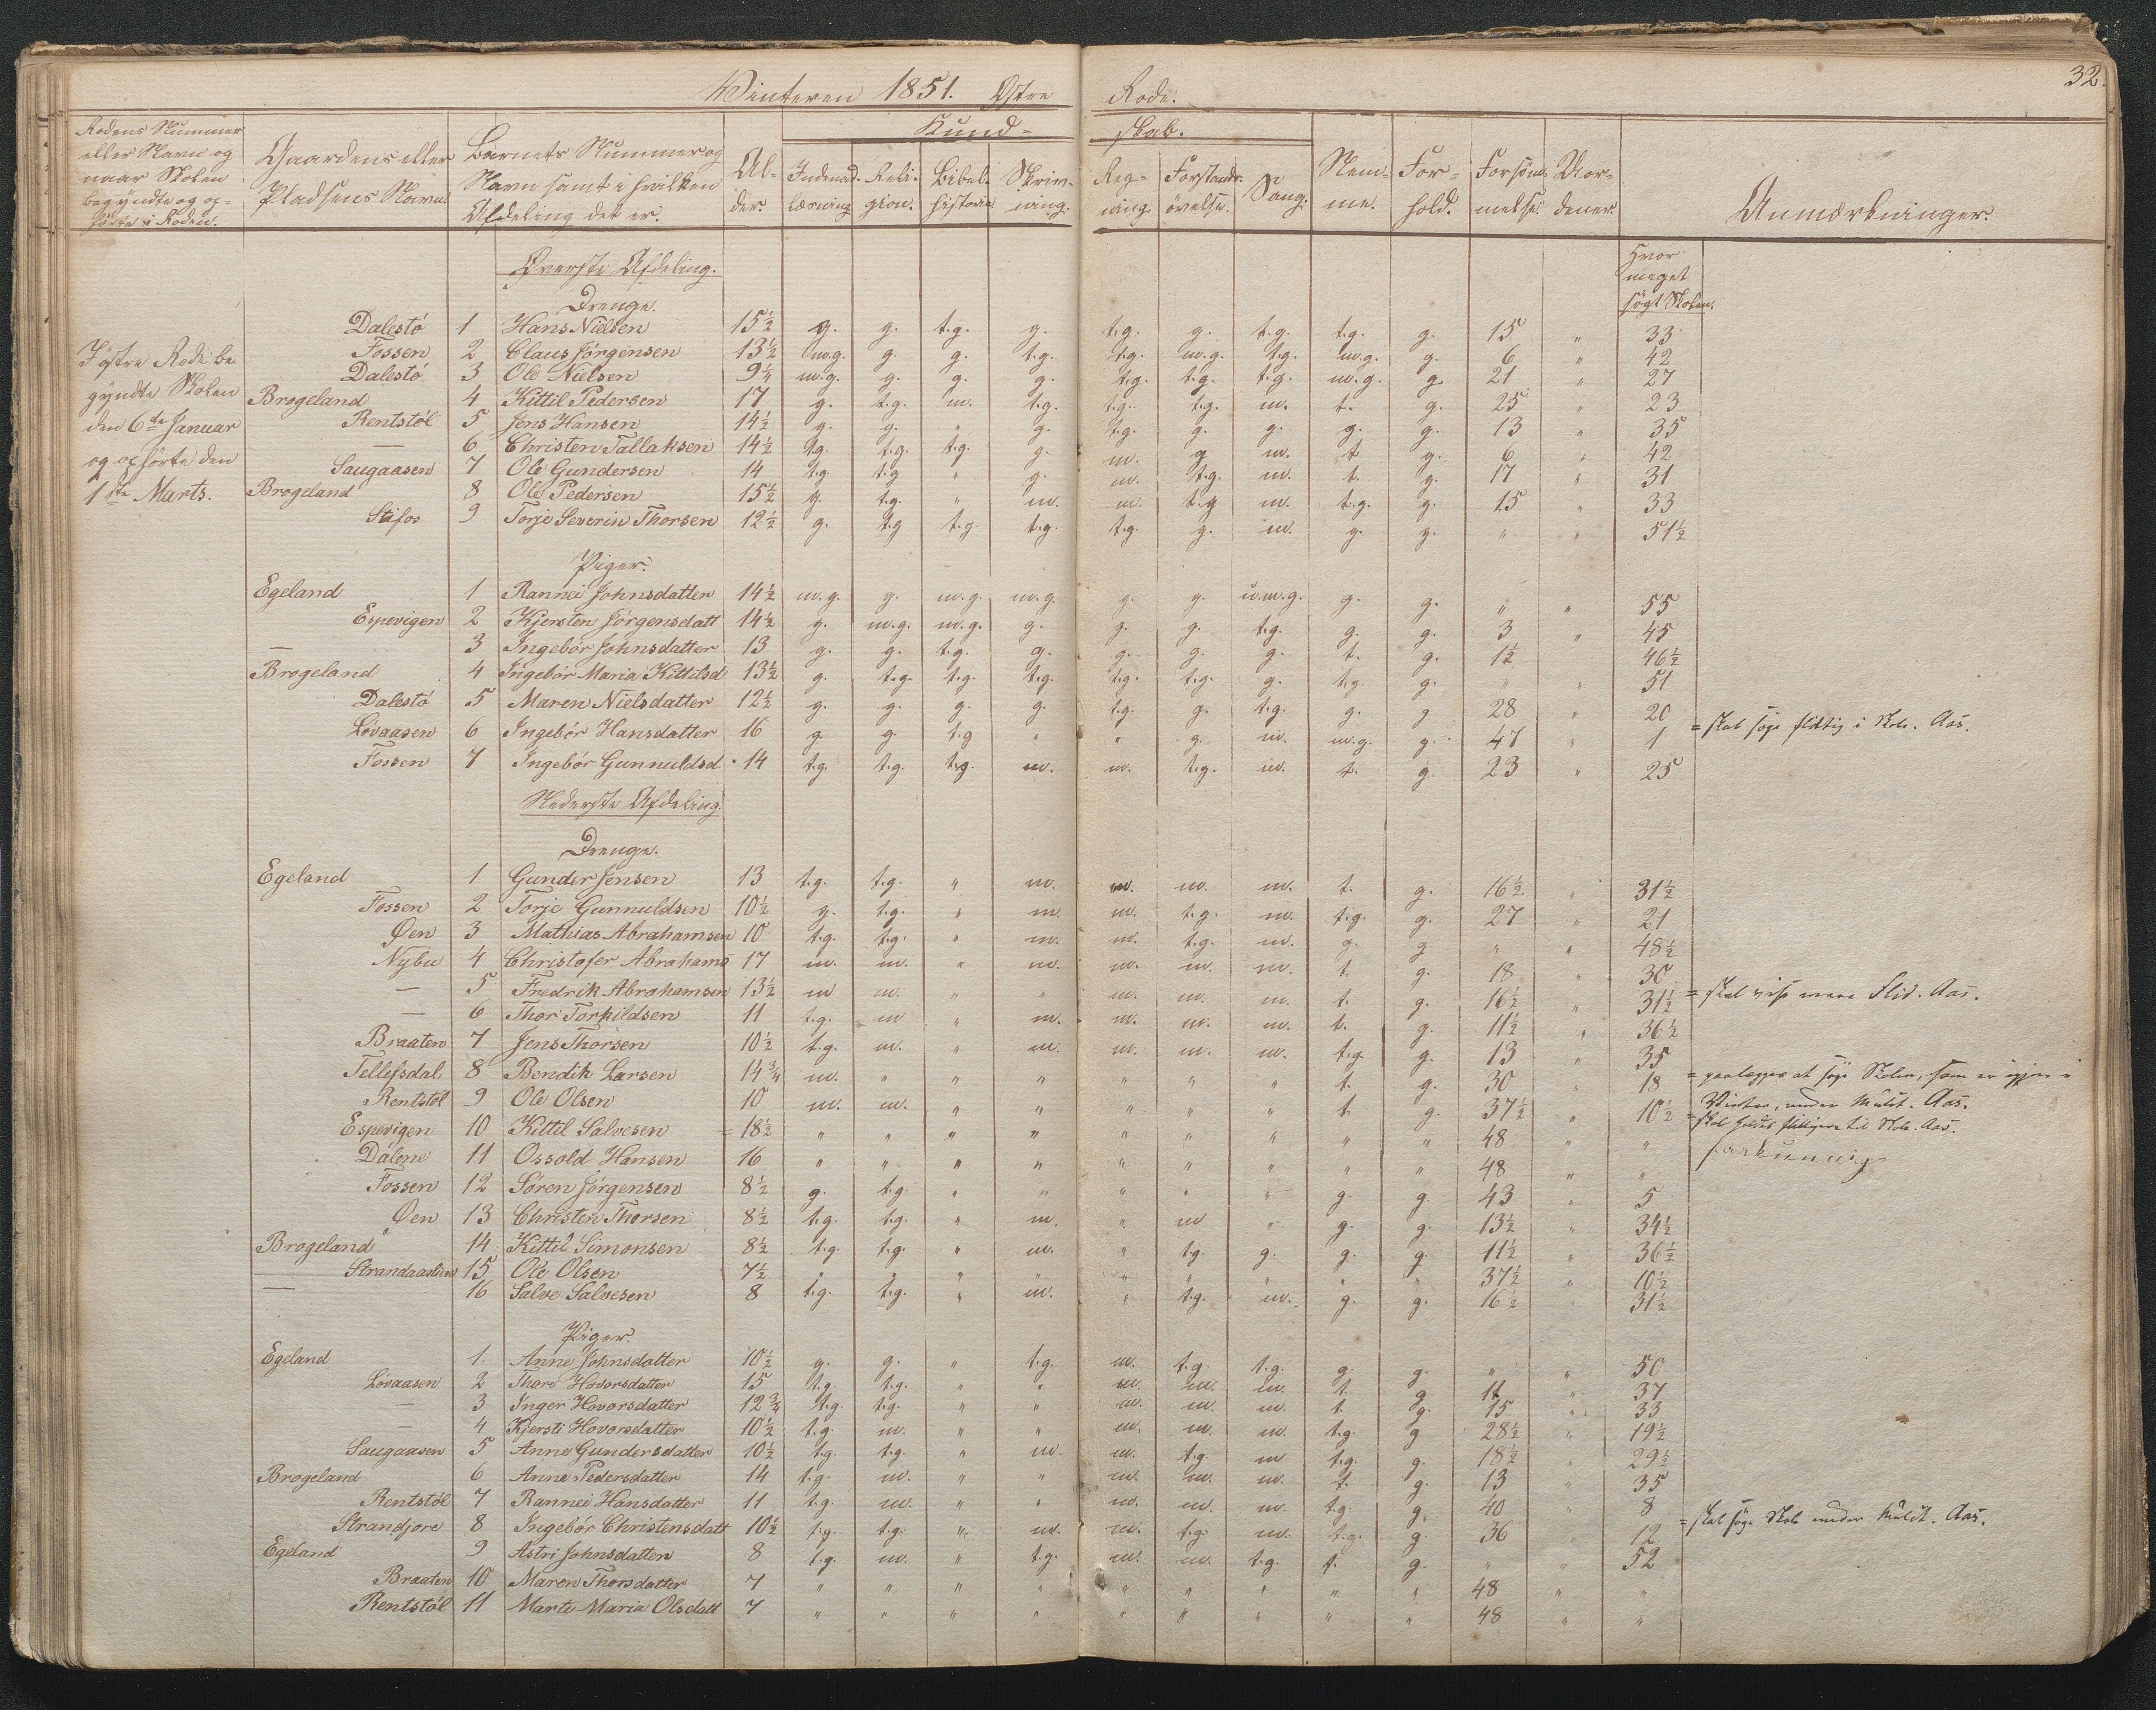 32.
Winteren 1851. Østre Rode.
Rodens Nummer eller Navn og naar Skolen begyndte og ophørte i Roden. | Gaardens eller Pladsens Navn | Barnets Nummer og Navn samt i hvilken Afdeling det er. | Alder. | Kundskab. | Indenadlæsning | Religion. | Bibelhistorie | Skrivning. | Regning | Forstandsøvelse. | Sang. | Nemme. | Forhold. | Forsømmelse. | Anmærkninger.
Hvor meget søgt Skolen.
I østre Rode be-
gyndte Skolen
den 6te Januar
og ophørte den
1ste Marts.
Øverste Afdeling.
Drenge.
Dalestö 1 Hans Nielsen 15½ g. g. t.g. g. t.g. g. t.g. t.g. g. 15 " 33
Fossen 2 Claus Jörgensen 13½ m.g. g g. t.g. t.g. m.g. t.g. m.g. g. 6 " 42
Dalestö 3 Ole Nielsen 9¼ m.g. g. g. g. t.g. t.g. t.g. m.g. g 21 " 27
Brogeland 4 Kittil Pedersen 17 g. t.g. m. t.g. t.g. t.g. m. t. g. 25 " 23
Rentstöl 5 Jens Hansen 14½ g. g. " g. t.g. g. g. g. g. 13 " 35
— 6 Christen Tallaksen 14½ t.g. t.g. t.g. g. m. g m. t g. 6 " 42
Saugaasen 7 Ole Gundersen 14 t.g t.g " g. m. t.g. m. t. g. 17 " 31
Brogeland 8 Ole Pedersen 15½ g. t.g. " m. m. t.g m. t.g. g. 15 " 33
Stifos 9 Torje Severin Thorsen 12½ g. t.g t.g. t.g. t.g. g. m. g. g. " " 51½
Piger.
Egeland 1 Rannei Johnsdatter 14½ m.g. g. m.g. m.g. g. g. u.m.g. g. g. " " 55
Espevigen 2 Kjersten Jörgensdatt 14½ g. m.g. m.g. g. g. g. t.g. g. g. 3 " 45
— 3 Ingebör Johnsdatter 13 g. g. t.g. g. g. g. g. t. g. 1½ 46½
Brogeland 4 Ingebör Maria Kittilsd 13½ g. t.g. t.g. t.g. t.g. t.g. g. t.g. g. " " 51
Dalestö 5 Maren Nielsdatter 12½ g. g. g. g. t.g. g. t.g. g. g 28 " 20
Lövaasen 6 Ingebör Hansdatter 16 g. g. t.g " " g. m. m.g. g. 47 " 1 = skal søge flittig i Skole. Aas.
Fossen 7 Ingebör Gunnuldsd. 14 t.g. t.g. t.g. m. m. t.g. m. t. g. 23 " 25
Nederste Afdeling.
Drenge.
Egeland 1 Gunder Jensen 13 t.g. t.g. " m. m. m. m. t. g. 16½ " 31½
Fossen 2 Torje Gunnuldsen 10½ g. t.g. " m m. t.g. m. t.g. g. 27 " 21
Øen 3 Mathias Abrahamsen 10 t.g. t.g. " m. m. t.g. m. g. g " " 48½
Nybu 4 Christofer Abrahams 17 m. m. " m. m. m. m. t. g. 18 " 30
— 5 Fredrik Abrahamsen 13½ m m. " " m. m. m. t. g. 16½ " 31½ = skal vise mere Flid. Aas.
— 6 Thor Torkildsen 11 t.g. m " m. m. m. m. t. g. 11½ " 36½
Braaten 7 Jens Thorsen 10½ t.g. m. " m. m. m. m. t.g. g. 13 " 35
Tellefsdal 8 Bendik Larsen 14¾ m. " " " " " " t. g. 30 " 18 = paalægges at søge Skolen, som er igjen i Vinter, under Mulct. Aas.
Rentstöl 9 Ole Olsen 10 m. m. " " " " " t. g. 37½ " 10½
Espevigen 10 Kittil Salvesen = 18½ " " " " " " " " " 48 " " = skal holdes flittigere til Skole. Aas.
Dalene 11 Ossold Hansen 16 " " " " " " " " " 48 " "
Fossen 12 Sören Jörgensen 8½ g. t.g. " " " " " g. g. 43 " 5
Øen 13 Christen Thorsen 8½ t.g. t.g. " m. " m " g. g. 13½ " 34½
Brogeland 14 Kittil Simonsen 8½ t.g. t.g. " m. " t.g. g. g. g. 11½ " 36½
Strandaaslien 15 Ole Olsen 7½ " " " " " " " " " 37½ " 10½
— 16 Salve Salvesen 8 t.g. t.g. " m. " t.g. m. g. g. 16½ " 31½
Piger.
Egeland 1. Anne Johnsdatter 10½ g. g. " t.g. m. t.g. t.g. g. g. " " 50
Lövaasen 2 Thore Hovorsdatter 15 t.g. t.g. " " m. m. m. t. g 11 " 37
— 3 Inger Hovorsdatter 12¾ t.g. t.g. " " m. m. m. t. g. 15 " 33
— 4 Kjersti Hovorsdatter 10½ t.g. m. " " m. m. m. t.g. g 28½ " 19½
Saugaasen 5 Anne Gundersdatter 10½ t.g. t.g. " m. m. t.g. m t.g. g. 18½ " 29½
Brogeland 6 Anne Pedersdatter 14 t.g. m. " " m. m. m. t. g. 13 " 35
Rentstöl 7 Rannei Hansdatter 11 t.g. m. " " m. m. m. t.g. g. 40 " 8 = skal søge Skole under Mulct. Aas.
Strandjore 8 Ingebör Christensdatt 10½ t.g. t.g. " m. m. t.g. m. t.g. g. 36 " 12
Egeland 9 Astri Johnsdatter 8 t.g. m. " t.g. m. m. t.g. t. g. " " 52
Braaten 10 Maren Thorsdatter 7 " " " " " " " " " 48 " "
Rentstöl 11 Marte Maria Olsdatt 7 " " " " " " " " " 48 " "